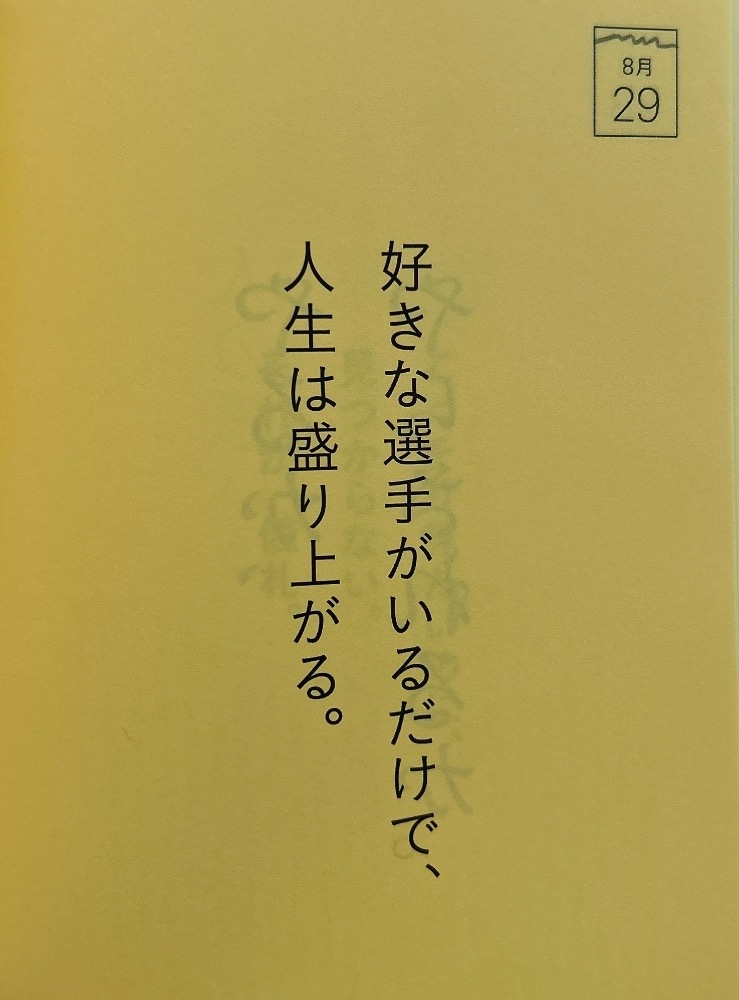 8月
29
好きな選手がいるだけで、
人生は盛り上がる。